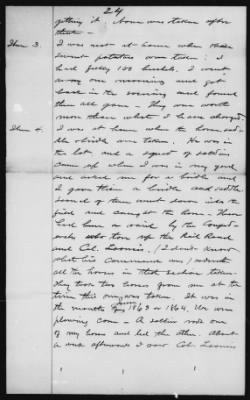 24
getting it. None was taken after
that —
Item 3. I was not at home when these
sweet potatoes were taken: I
had fully 100 bushels. I went
away one morning and got
back in the evening and found
them all gone — They were worth
more than what I have charged.
Item 4. I was at home when the horse and
bridle were taken. He was in
the lot and a squad of soldiers
came up when I was in my yard
and asked me for a bridle and
I gave them a bridle and
several of them went down into the
field and caught the horse. There
had been a raid by the
who tore up the Rail Road
and Col. Loomis, (I don't know
what his command was) ordered
all the horses in that section taken.
They took two horses from me at the
time this one was taken. It was in
the month of June 1863 or 1864. We were
plowing corn — A soldier rode one
of my horses and led the other. About
a week afterwards I saw Col. Loomis